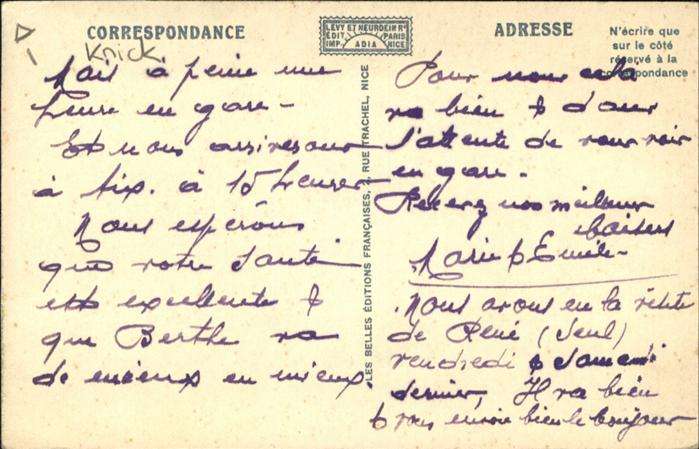 CORRESPONDANCE
LEVY ET NEURDEIN Rs
EDIT. PARIS
IMP. ADIA NICE
ADRESSE
N'écrire que
sur le côté
réservé à la
correspondance
Knick
Mais à peine une
heure en gare -
Et nous arriverons
à Aix. à 15 heures
Nous espérons
que votre santé
est excellente &
que Berthe va
de mieux en mieux.
LES BELLES ÉDITIONS FRANÇAISES, RUE TRACHEL, NICE
Pour nous cela
va bien & dans
l'attente de vous voir
en gare.
Recevez nos meilleurs
baisers
Marie & Emile
Nous avons eu la visite
de René (seul)
vendredi & samedi
dernier, Il va bien
& vous envoie bien le bonjour